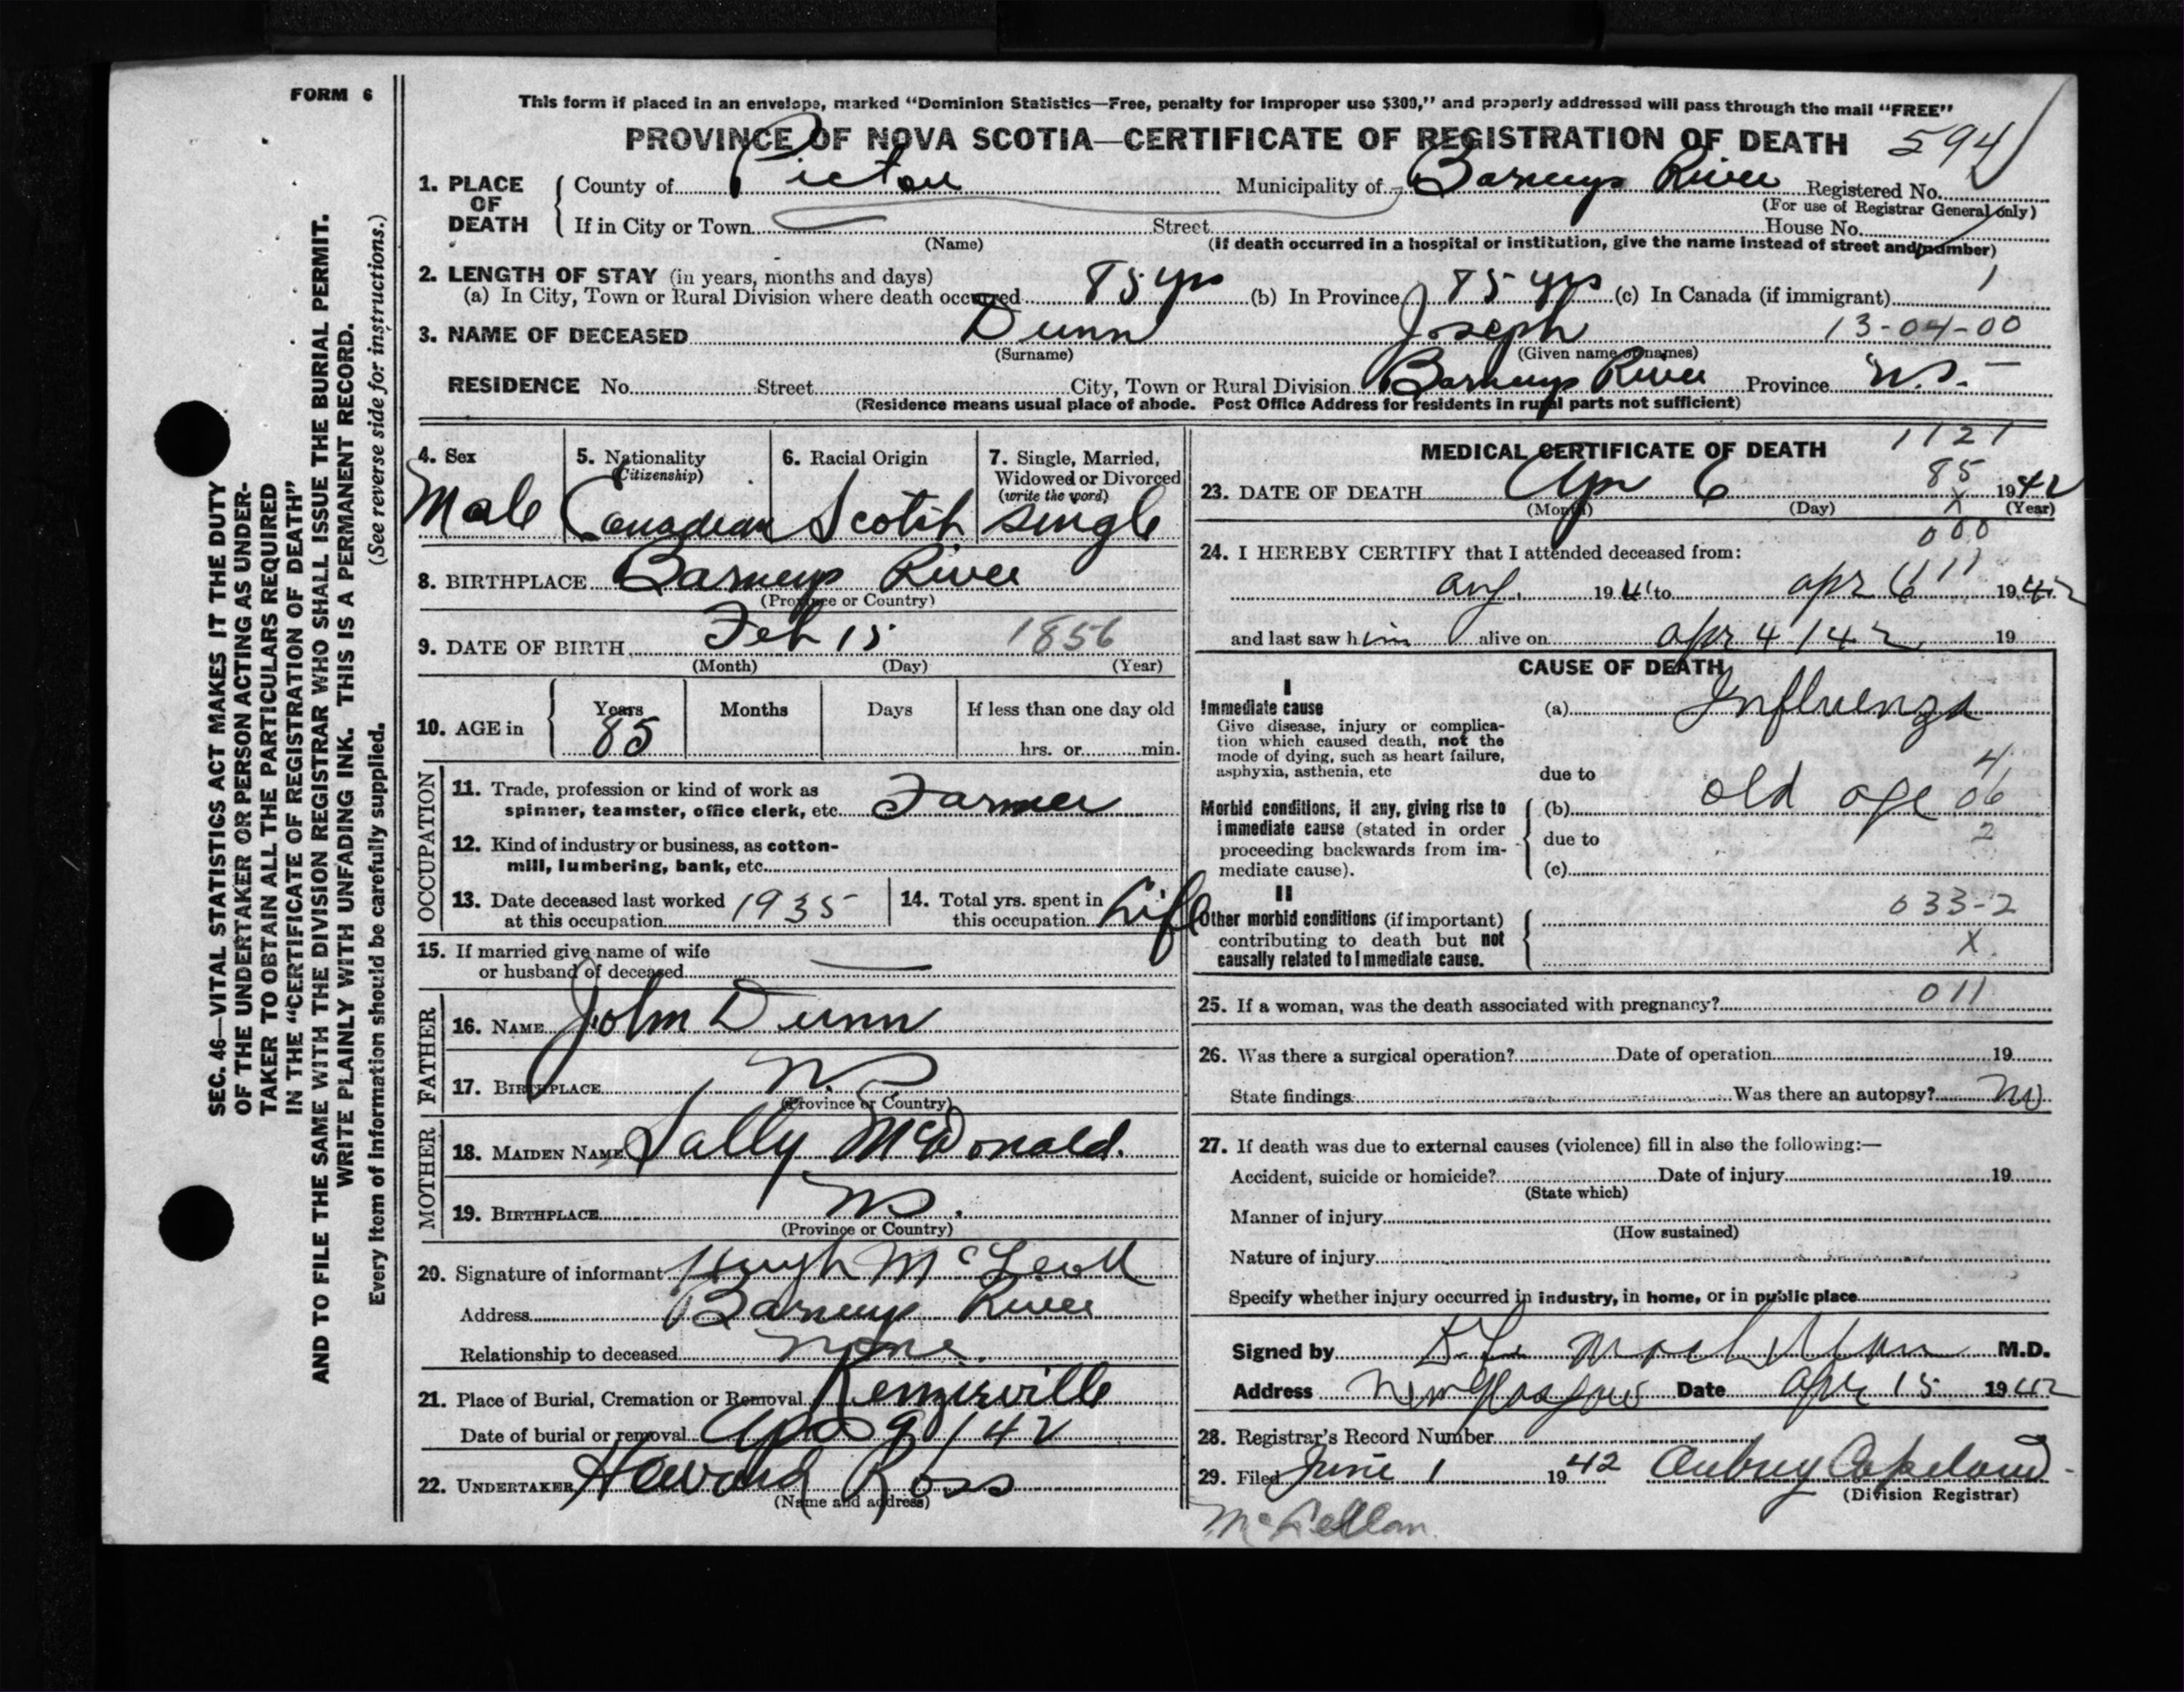 FORM 6
This form if placed in an envelope, marked "Dominion Statistics—Free, penalty for improper use $300," and properly addressed will pass through the mail "FREE"
PROVINCE OF NOVA SCOTIA—CERTIFICATE OF REGISTRATION OF DEATH 594
1. PLACE OF DEATH County of Pictou Municipality of Barneys River Registered No.
(For use of Registrar General only)
If in City or Town Street House No.
(Name) (If death occurred in a hospital or institution, give the name instead of street and number)
2. LENGTH OF STAY (in years, months and days) 1
(a) In City, Town or Rural Division where death occurred 85 yrs (b) In Province 85 yrs (c) In Canada (if immigrant)
3. NAME OF DECEASED Dunn Joseph 13-04-00
(Surname) (Given name or names)
RESIDENCE No. Street City, Town or Rural Division Barneys River Province N.S.
(Residence means usual place of abode. Post Office Address for residents in rural parts not sufficient)
4. Sex Male
5. Nationality (Citizenship) Canadian
6. Racial Origin Scotch
7. Single, Married, Widowed or Divorced (write the word) single
8. BIRTHPLACE Barneys River
(Province or Country)
9. DATE OF BIRTH Feb 15 1856
(Month) (Day) (Year)
10. AGE in Years 85 Months Days If less than one day old
hrs. or min.
OCCUPATION
11. Trade, profession or kind of work as
spinner, teamster, office clerk, etc. Farmer
12. Kind of industry or business, as cotton-
mill, lumbering, bank, etc.
13. Date deceased last worked at this occupation 1935
14. Total yrs. spent in this occupation Life
15. If married give name of wife
or husband of deceased —
FATHER
16. NAME John Dunn
17. BIRTHPLACE NS
(Province or Country)
MOTHER
18. MAIDEN NAME Sally McDonald.
19. BIRTHPLACE NS.
(Province or Country)
20. Signature of informant Hugh McLeod
Address Barneys River
Relationship to deceased None.
21. Place of Burial, Cremation or Removal
Date of burial or removal Apr 9/42
22. UNDERTAKER Howard Ross
(Name and address)
MEDICAL CERTIFICATE OF DEATH 1121
85
23. DATE OF DEATH Apr 6 1942
(Month) (Day) X (Year)
000
24. I HEREBY CERTIFY that I attended deceased from:
111
Aug. 1941 to Apr 6 1942
and last saw him alive on Apr 4/42 19
CAUSE OF DEATH
I
Immediate cause (a) Influenza
Give disease, injury or complica-
tion which caused death, not the
mode of dying, such as heart failure,
asphyxia, asthenia, etc
due to 4
Morbid conditions, if any, giving rise to
immediate cause (stated in order
proceeding backwards from im-
mediate cause).
(b) old age 06
due to 2
(c)
II
Other morbid conditions (if important)
contributing to death but not
causally related to Immediate cause.
033-2
X
25. If a woman, was the death associated with pregnancy? 011
26. Was there a surgical operation? Date of operation 19
State findings Was there an autopsy? No
27. If death was due to external causes (violence) fill in also the following:—
Accident, suicide or homicide? Date of injury 19
(State which)
Manner of injury
(How sustained)
Nature of injury
Specify whether injury occurred in industry, in home, or in public place
Signed by M.D.
Address New Glasgow Date Apr 15 1942
28. Registrar's Record Number
29. Filed June 1 1942 Aubrey Copeland
(Division Registrar)
McLellan
SEC. 46—VITAL STATISTICS ACT MAKES IT THE DUTY
OF THE UNDERTAKER OR PERSON ACTING AS UNDER-
TAKER TO OBTAIN ALL THE PARTICULARS REQUIRED
IN THE "CERTIFICATE OF REGISTRATION OF DEATH"
AND TO FILE THE SAME WITH THE DIVISION REGISTRAR WHO SHALL ISSUE THE BURIAL PERMIT.
WRITE PLAINLY WITH UNFADING INK. THIS IS A PERMANENT RECORD.
Every item of information should be carefully supplied. (See reverse side for instructions.)